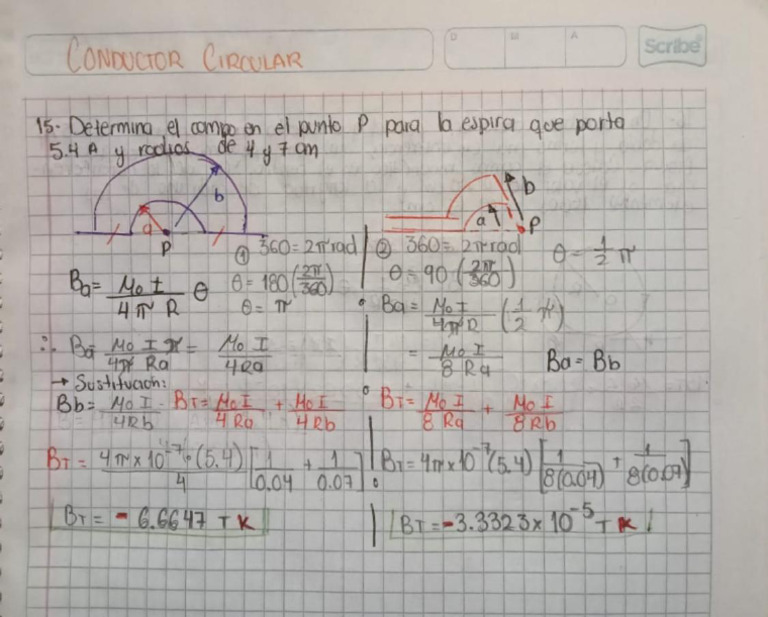 CONDUCTOR CIRCULAR
D M A
Scribe
15.- Determina el campo en el punto P para la espira que porta
5.4 A y radios de 4 y 7 cm
b
a
P
b
a
P
① 360 = 2π rad
θ = 180 (2π/360)
θ = π
Ba = Mo I / 4π R θ
∴ Ba = Mo I π / 4π Ra = Mo I / 4Ra
→ Sustitución:
Bb = Mo I / 4Rb BT = Mo I / 4Ra + Mo I / 4Rb
BT = 4π x 10⁻⁷ · (5.4) / 4 [1/0.04 + 1/0.07]
BT = - 6.6647 T K
② 360 = 2π rad
θ = 1/2 π
θ = 90 (2π/360)
Ba = Mo I / 4π R (1/2 π)
= Mo I / 8 Ra Ba = Bb
BT = Mo I / 8 Ra + Mo I / 8Rb
BT = 4π x 10⁻⁷ (5.4) [1/8(0.04) + 1/8(0.07)]
BT = -3.3323 x 10⁻⁵ T K